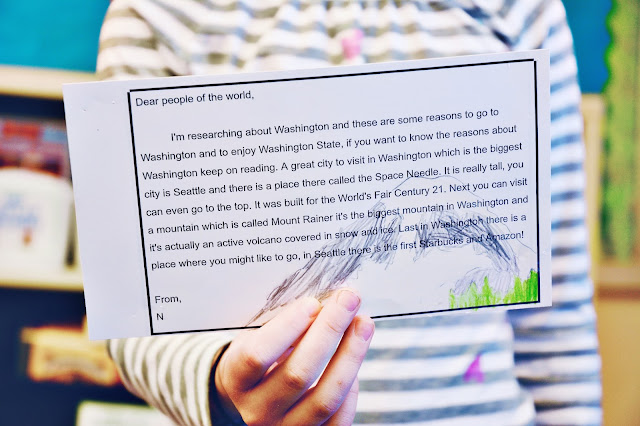 Dear people of the world,
I'm researching about Washington and these are some reasons to go to
Washington and to enjoy Washington State, if you want to know the reasons about
Washington keep on reading. A great city to visit in Washington which is the biggest
city is Seattle and there is a place there called the Space Needle. It is really tall, you
can even go to the top. It was built for the World's Fair Century 21. Next you can visit
a mountain which is called Mount Rainer it's the biggest mountain in Washington and
it's actually an active volcano covered in snow and ice. Last in Washington there is a
place where you might like to go, in Seattle there is the first Starbucks and Amazon!
From,
N